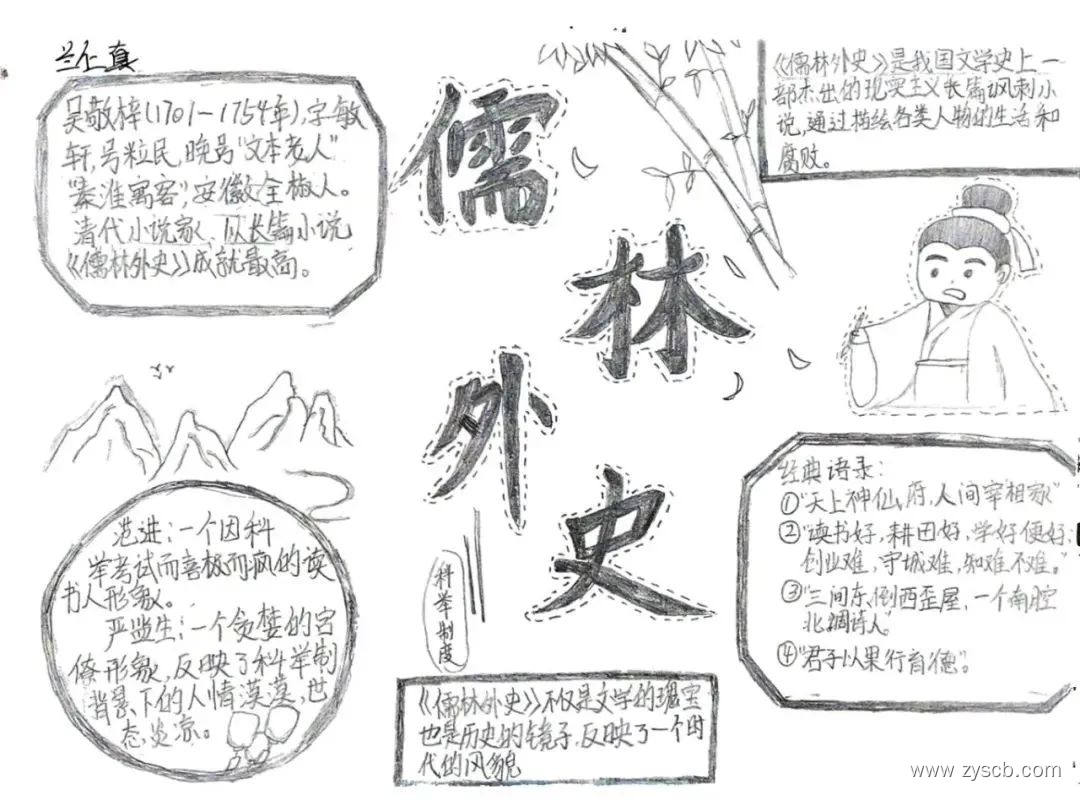 吴敬梓(1701-1754年),字敏
轩,号粒民,晚号"文本老人"
"秦淮寓客",安徽全椒人。
清代小说家、以长篇小说
《儒林外史》成就最高。
儒林外史
《儒林外史》是我国文学史上一
部杰出的现实主义长篇讽刺小
说,通过描绘各类人物的生活和
腐败。
范进:一个因科
举考试而喜极而疯的读
书人形象。
严监生:一个贪婪的官
僚形象,反映了科举制
背景下的人情漠漠,世
态炎凉。
科举制度
经典语录:
①"天上神仙府,人间宰相家"
②"读书好,耕田好,学好便好;
创业难,守城难,知难不难。"
③"三间东倒西歪屋,一个南腔
北调诗人"。
④"君子以果行育德"。
《儒林外史》不仅是文学的瑰宝
也是历史的镜子,反映了一个时
代的风貌
www.zyscb.com